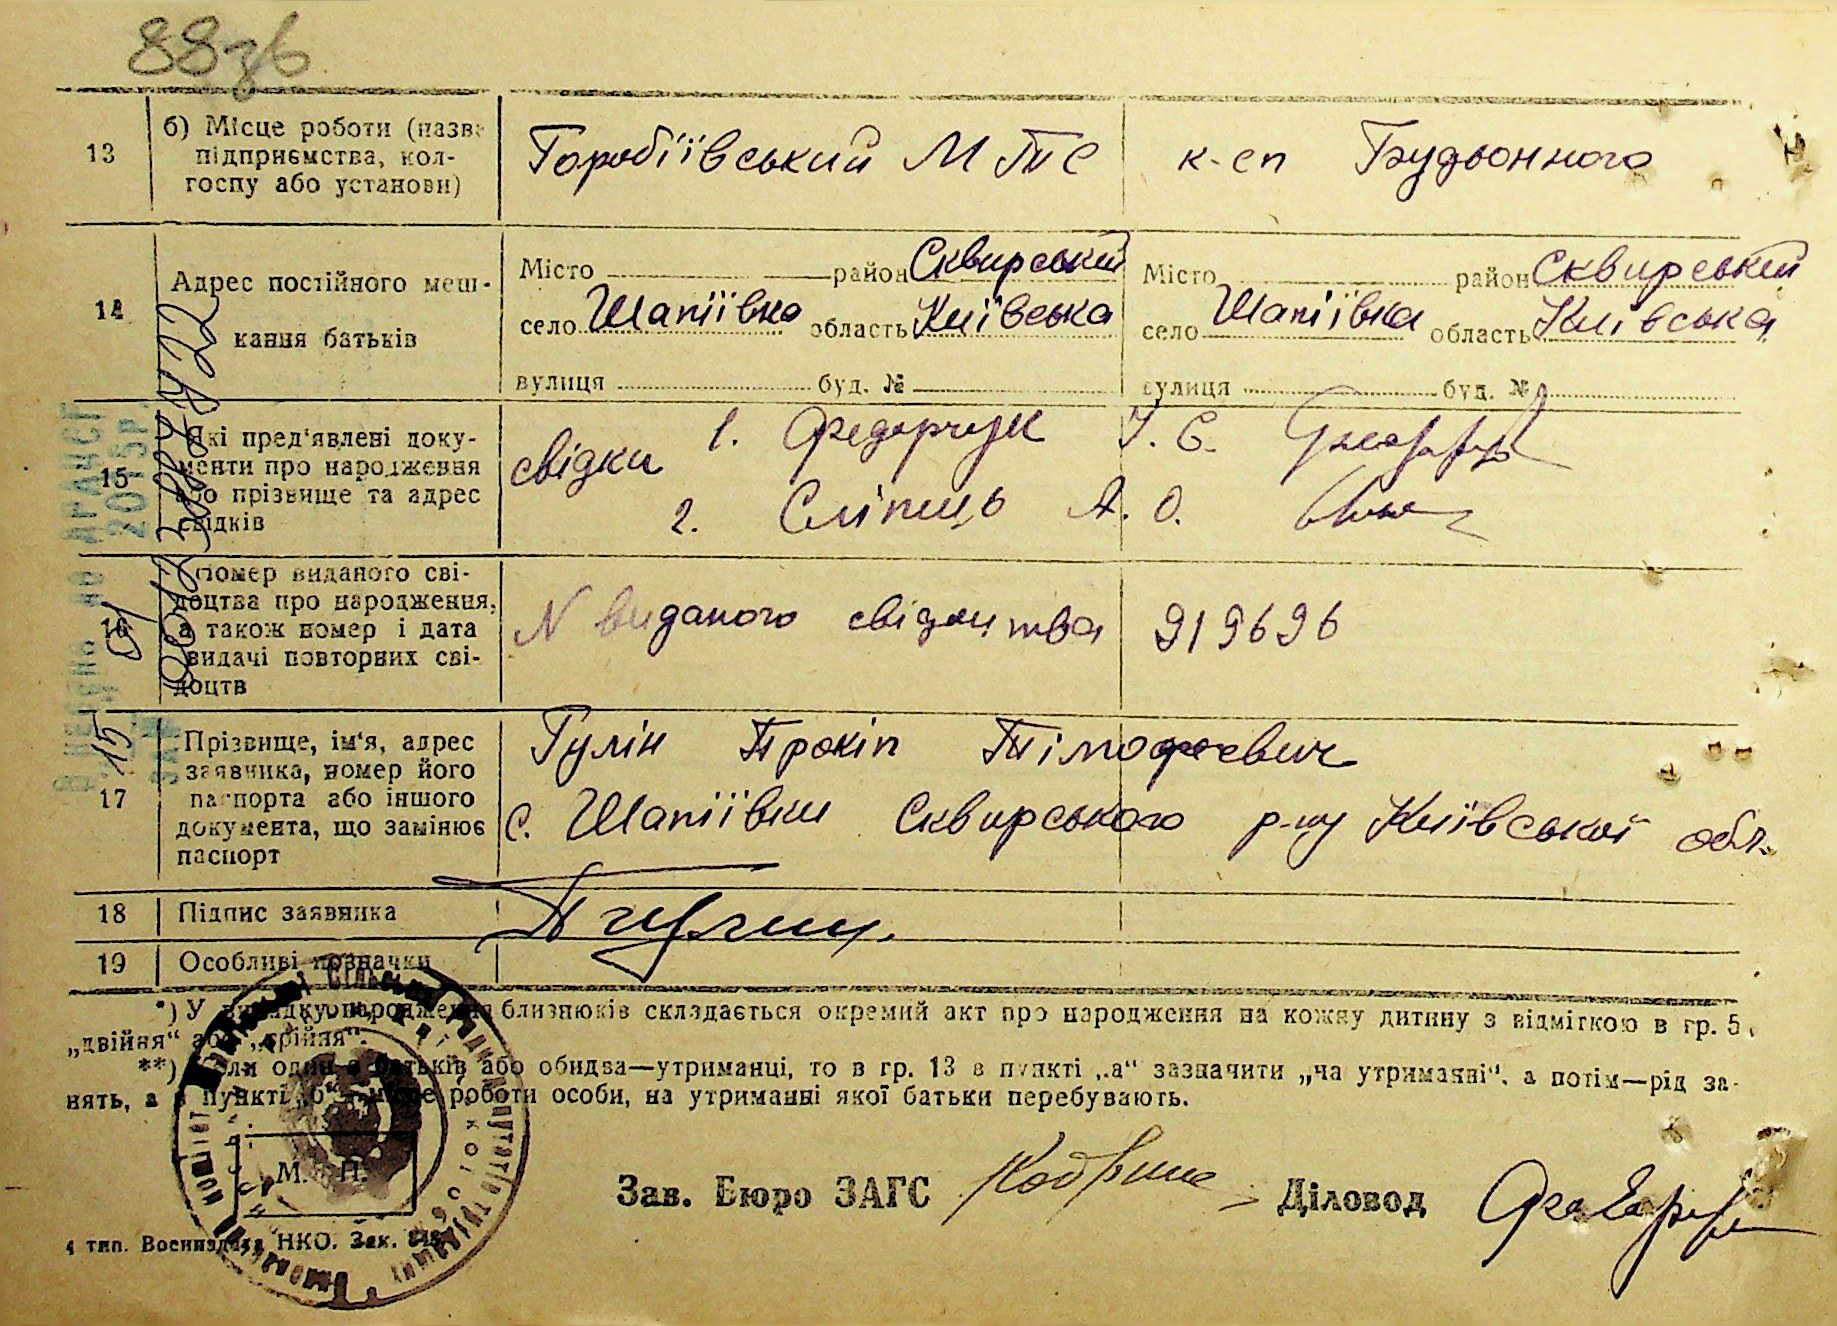 88зв
13
б) Місце роботи (назва
підприємства, кол-
госпу або установи)
Горобіївський МТС
к-сп Будьонного
14
Адрес постійного меш-
кання батьків
Місто район Сквирський
село Шапіївка область Київська
вулиця буд. №
Місто район Сквирський
село Шапіївка область Київська
вулиця буд. №
15
Які пред'явлені доку-
менти про народження
або прізвище та адрес
свідків
свідки 1. Федорчук У. Є.
2. Сліпець А. О.
16
Номер виданого сві-
доцтва про народження,
а також номер і дата
видачі повторних сві-
доцтв
N виданого свідоцтва 919696
17
Прізвище, ім'я, адрес
заявника, номер його
паспорта або іншого
документа, що замінює
паспорт
Гулін Прокіп Тімофеевич
с. Шапіївки Сквирського р-ну Київської обл.
18
Підпис заявника
19
Особливі позначки
*) У випадку народження близнюків складається окремий акт про народження на кожну дитину з відміткою в гр. 5,
„двійня“ або „трійня“.
**) Коли один з батьків або обидва—утриманці, то в гр. 13 в пункті „а“ зазначити „на утриманні“, а потім—рід за-
нять, а в пункті „б“ місце роботи особи, на утриманні якої батьки перебувають.
М. П.
Зав. Бюро ЗАГС
Діловод
4 тип. Воениздата НКО. Зак.